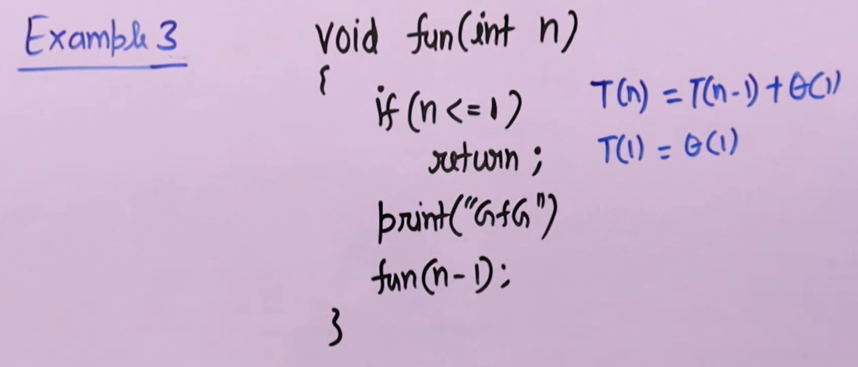 Example 3
void fun(int n)
{
if (n <= 1)
return ;
print("GfG")
fun(n-1);
}
T(n) = T(n-1) + Θ(1)
T(1) = Θ(1)